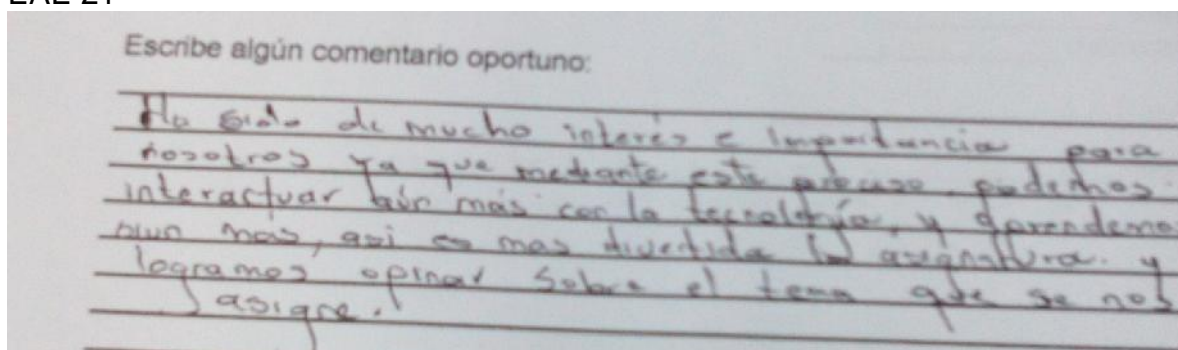 Escribe algún comentario oportuno:
Ha sido de mucho interés e importancia para
nosotros ya que mediante este proceso podemos
interactuar aún más con la tecnología, y aprendemos
aun mas, asi es mas divertida la asignatura. y
logramos opinar sobre el tema que se nos
asigne.